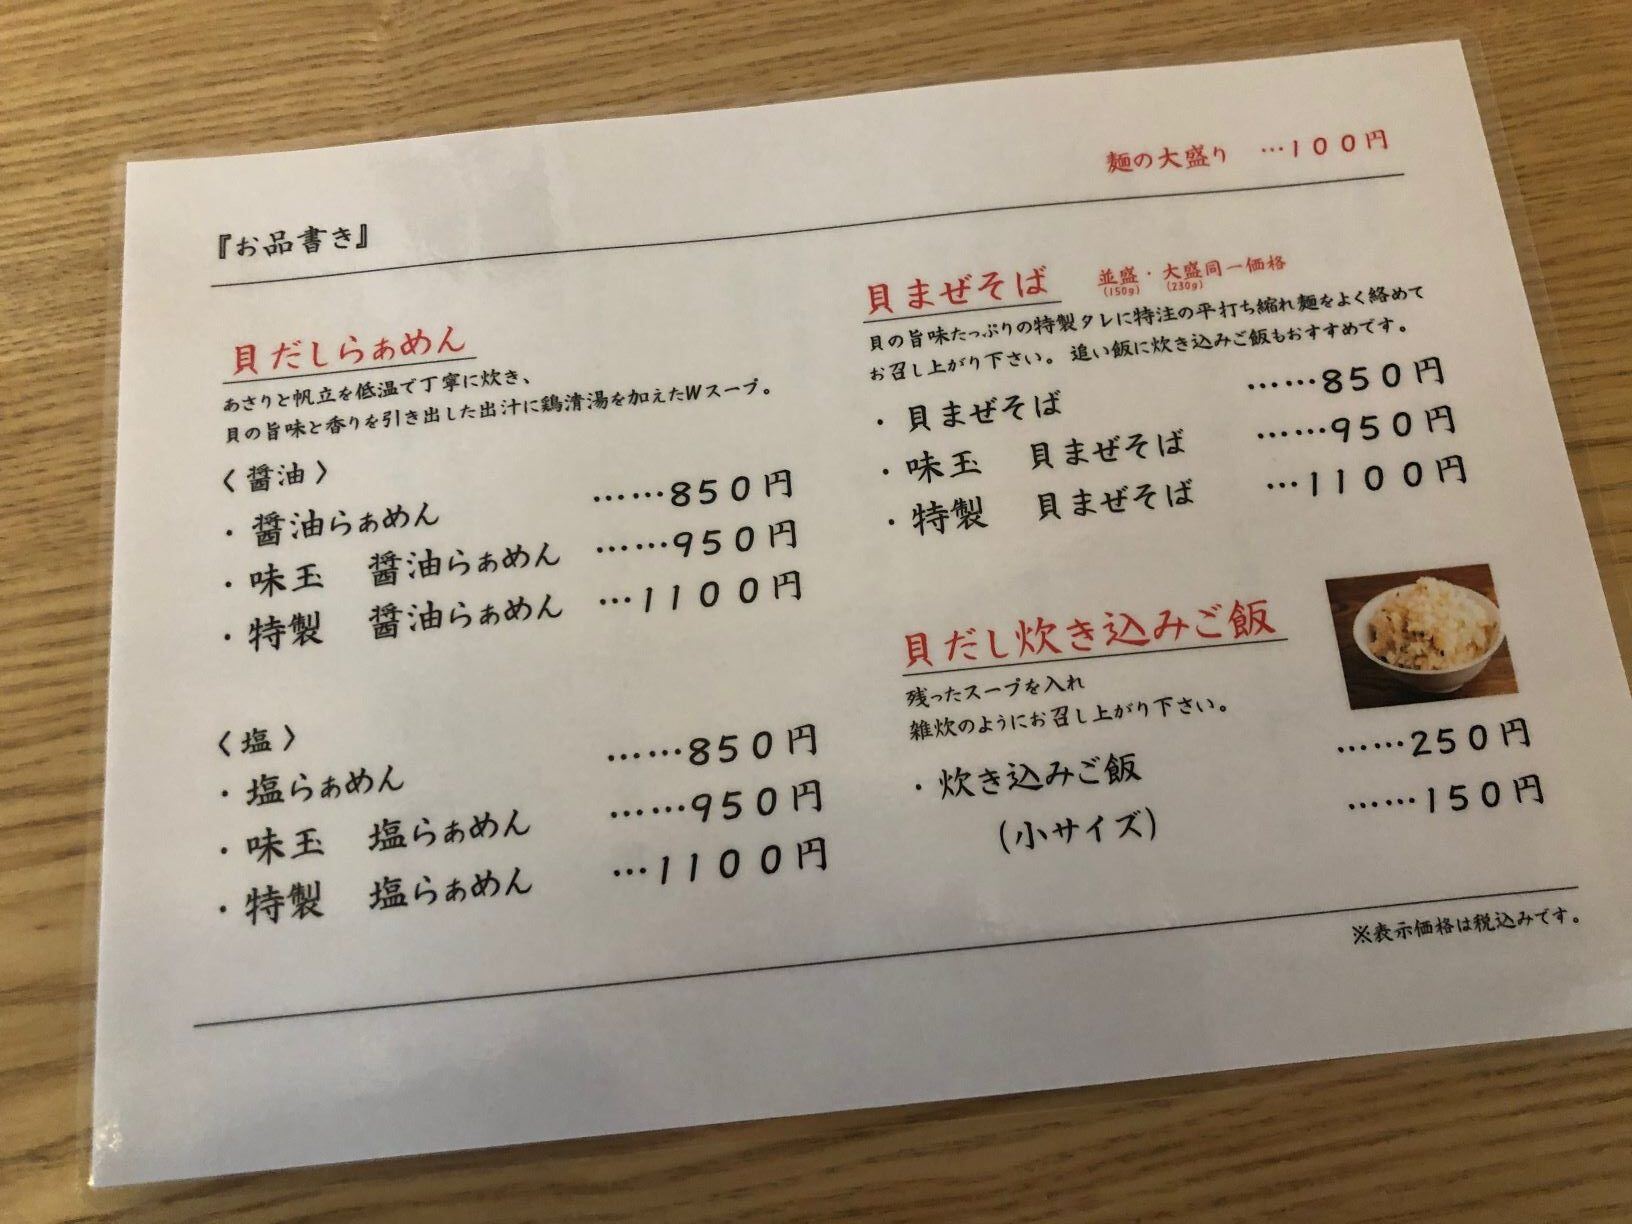 麺の大盛り …100円
『お品書き』
貝だしらぁめん
あさりと帆立を低温で丁寧に炊き、
貝の旨味と香りを引き出した出汁に鶏清湯を加えたWスープ。
〈醤油〉
・醤油らぁめん ……850円
・味玉 醤油らぁめん ……950円
・特製 醤油らぁめん …1100円
〈塩〉
・塩らぁめん ……850円
・味玉 塩らぁめん ……950円
・特製 塩らぁめん …1100円
貝まぜそば 並盛・大盛同一価格
(150g) (230g)
貝の旨味たっぷりの特製タレに特注の平打ち縮れ麺をよく絡めて
お召し上がり下さい。追い飯に炊き込みご飯もおすすめです。
・貝まぜそば ……850円
・味玉 貝まぜそば ……950円
・特製 貝まぜそば …1100円
貝だし炊き込みご飯
残ったスープを入れ
雑炊のようにお召し上がり下さい。
・炊き込みご飯 ……250円
(小サイズ) ……150円
※表示価格は税込みです。